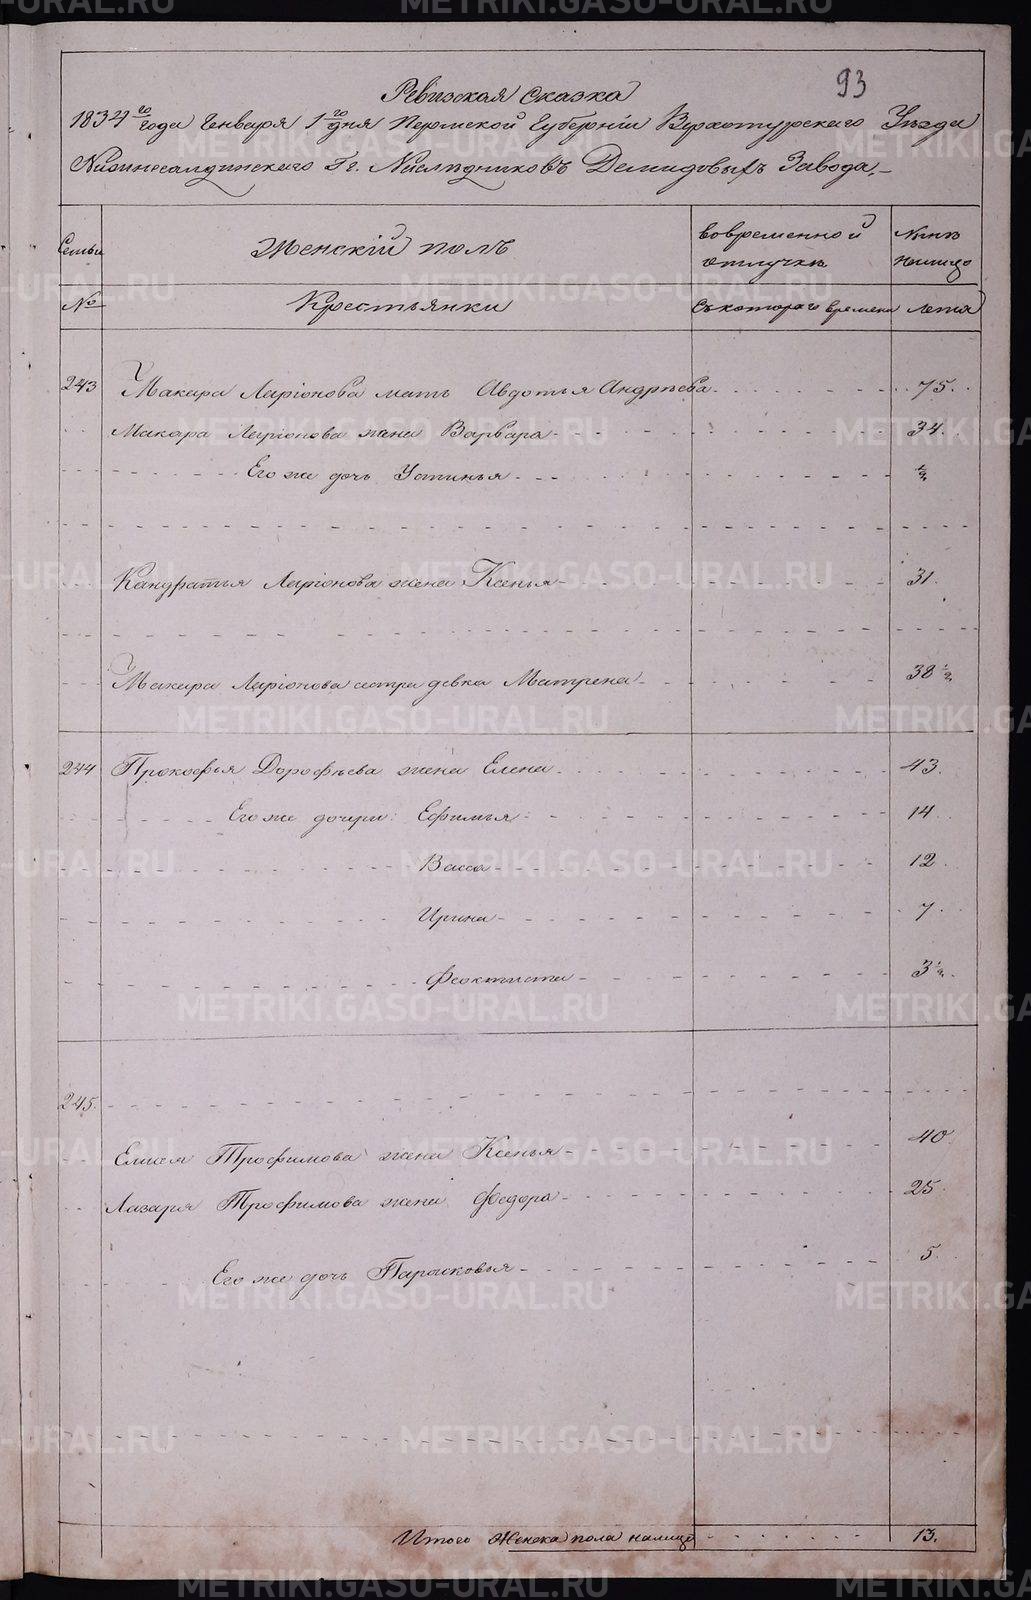 93
Ревизская сказка
1834го года Генваря 1го дня Пермской Губернiи Верхотурскаго Уѣзда
Нижнесалдинскаго Гг. Наслѣдниковъ Демидовыхъ Завода.
Семьи Женскiй полъ вовременной отлучкѣ Нынѣ налицо
№ Крестьянки Съкотораго времени лета
243 Макара Ларiонова мать Авдотья Андрѣева 75.
Макара Ларiонова жена Варвара 34.
Его же дочь Устинья ½
Кандратья Ларiонова жена Ксенья 31.
Макара Ларiонова сестра девка Матрена 38 ½
244 Прокофья Дорофѣева жена Елена 43.
Его же дочери: Ефимья 14
Васса 12
Ирина 7
Феоктиста 3 ½.
245.
Елисея Трофимова жена Ксенья 40
Лазаря Трофимова жена Федора 25
Его же дочь Парасковья 5
Итого Женска пола налицо 13.
METRIKI.GASO-URAL.RU